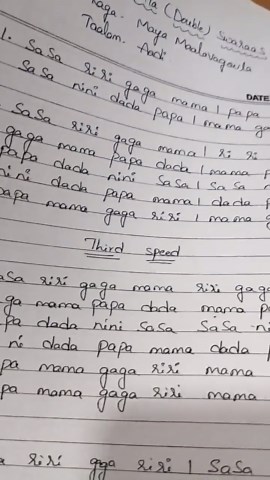 (Double) Swaraas
Raga. Maya Maalavagaula
Taalam. Aadi
DATE
1. Sasa riri gaga mama | papa
Sasa nini dada papa | mama ga
Sasa riri gaga mama | ri ri
gaga mama papa dada | mama
papa dada nini Sasa | Sa Sa
nini dada papa mama | dada
papa mama gaga riri | mama
Third speed
Sasa riri gaga mama riri gaga
ga mama papa dada mama
pa dada nini Sasa Sasa ni
ni dada papa mama dada
pa mama gaga riri mama
pa mama gaga riri mama
riri gaga riri | Sasa